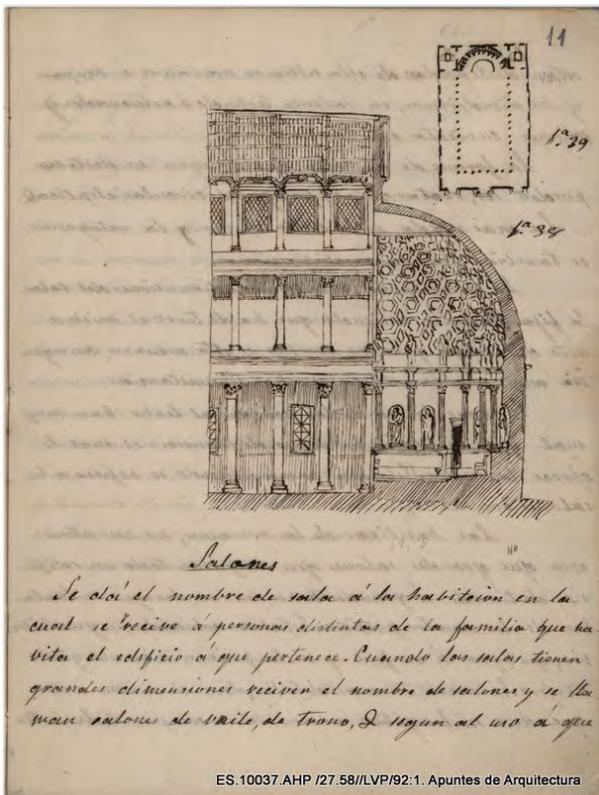 11
f.ª 39
f.ª 38
Salones
Se dá el nombre de sala á la habitacion en la
cual se recive á personas distintas de la familia que ha
vita el edificio á que pertenece. Cuando las salas tienen
grandes dimensiones reciven el nombre de salones y se lla
man salones de vaile, de trono, & segun al uso á que
ES.10037.AHP /27.58//LVP/92:1. Apuntes de Arquitectura